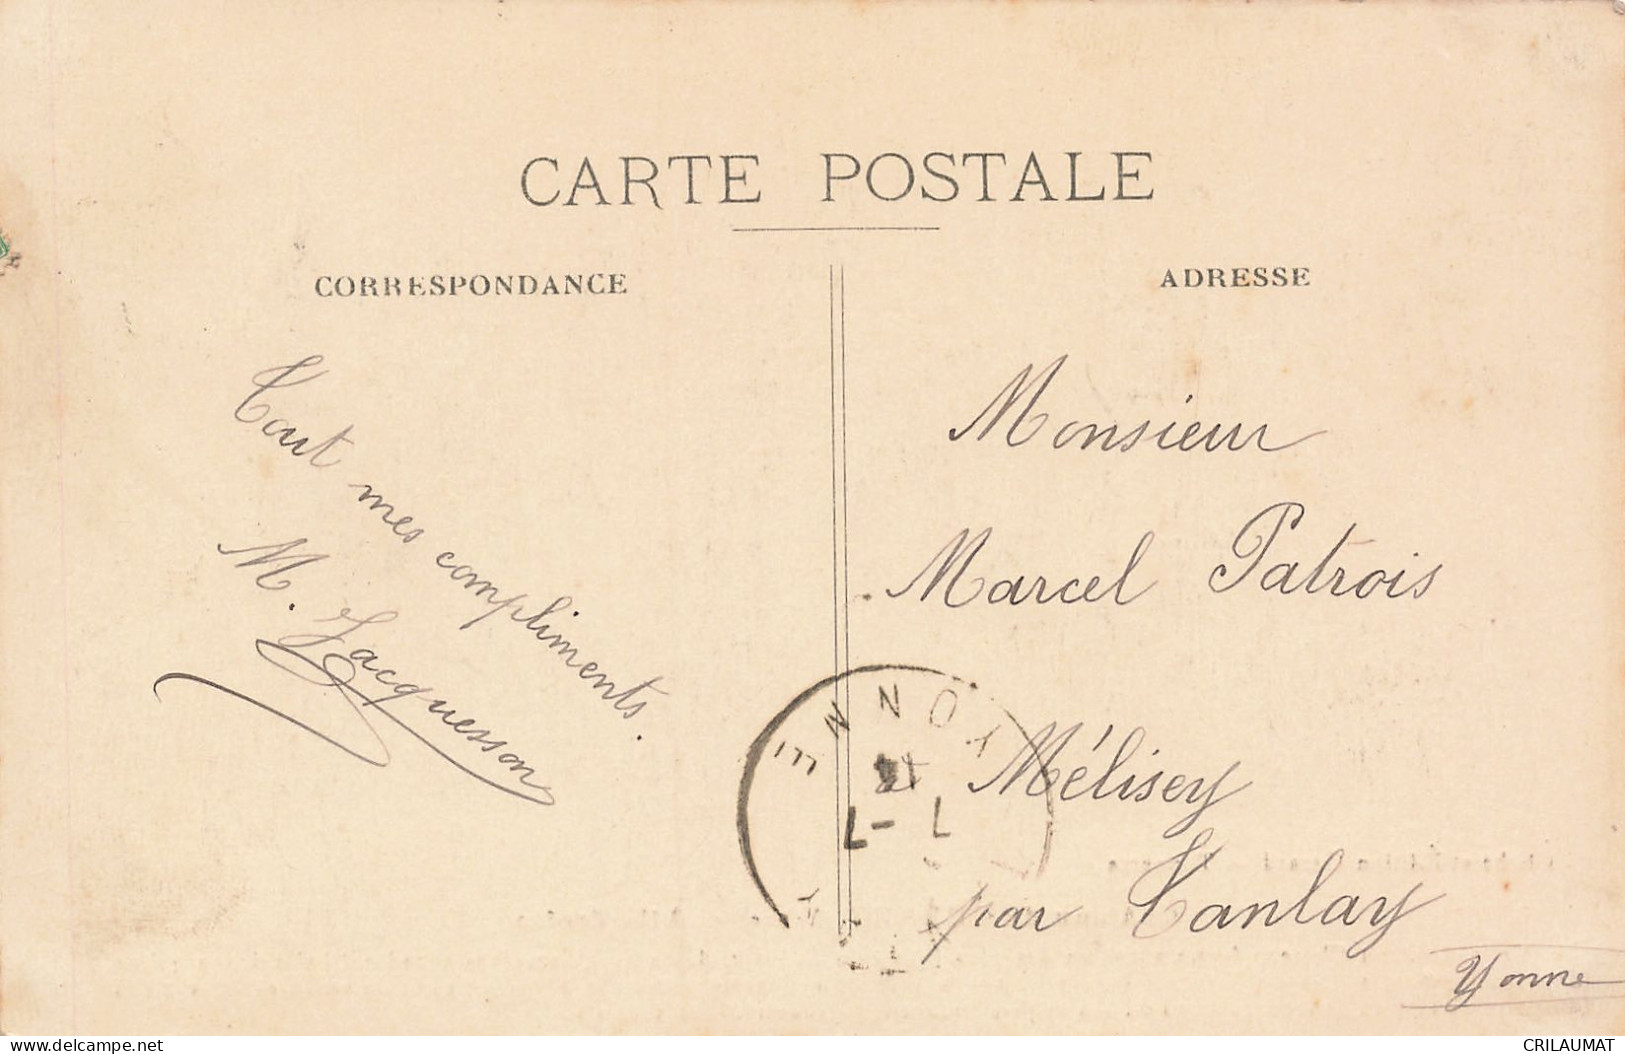 CARTE POSTALE
CORRESPONDANCE
ADRESSE
Tout mes compliments.
M. Jacquesson
Monsieur
Marcel Patrois
Mélisey
par Tanlay
Yonne
YONNE
delcampe.net
CRILAUMAT